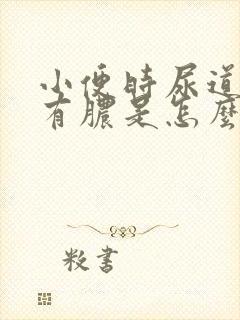 小便时尿道
有膿是怎麼
敉書